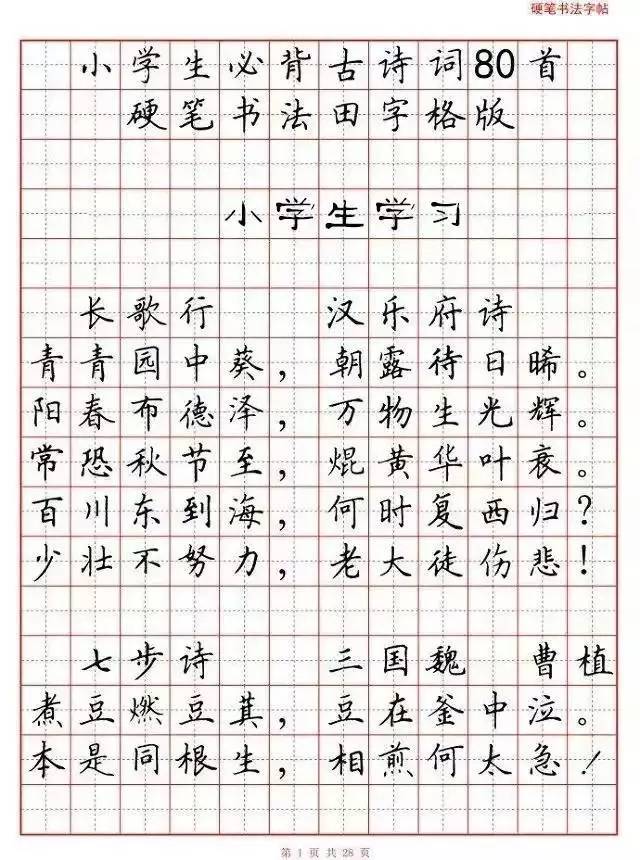 硬笔书法字帖
小学生必背古诗词80首
硬笔书法田字格版
小学生学习
长歌行 汉乐府诗
青青园中葵，朝露待日晞。
阳春布德泽，万物生光辉。
常恐秋节至，焜黄华叶衰。
百川东到海，何时复西归？
少壮不努力，老大徒伤悲！
七步诗 三国魏 曹植
煮豆燃豆萁，豆在釜中泣。
本是同根生，相煎何太急！
第 1 页 共 28 页